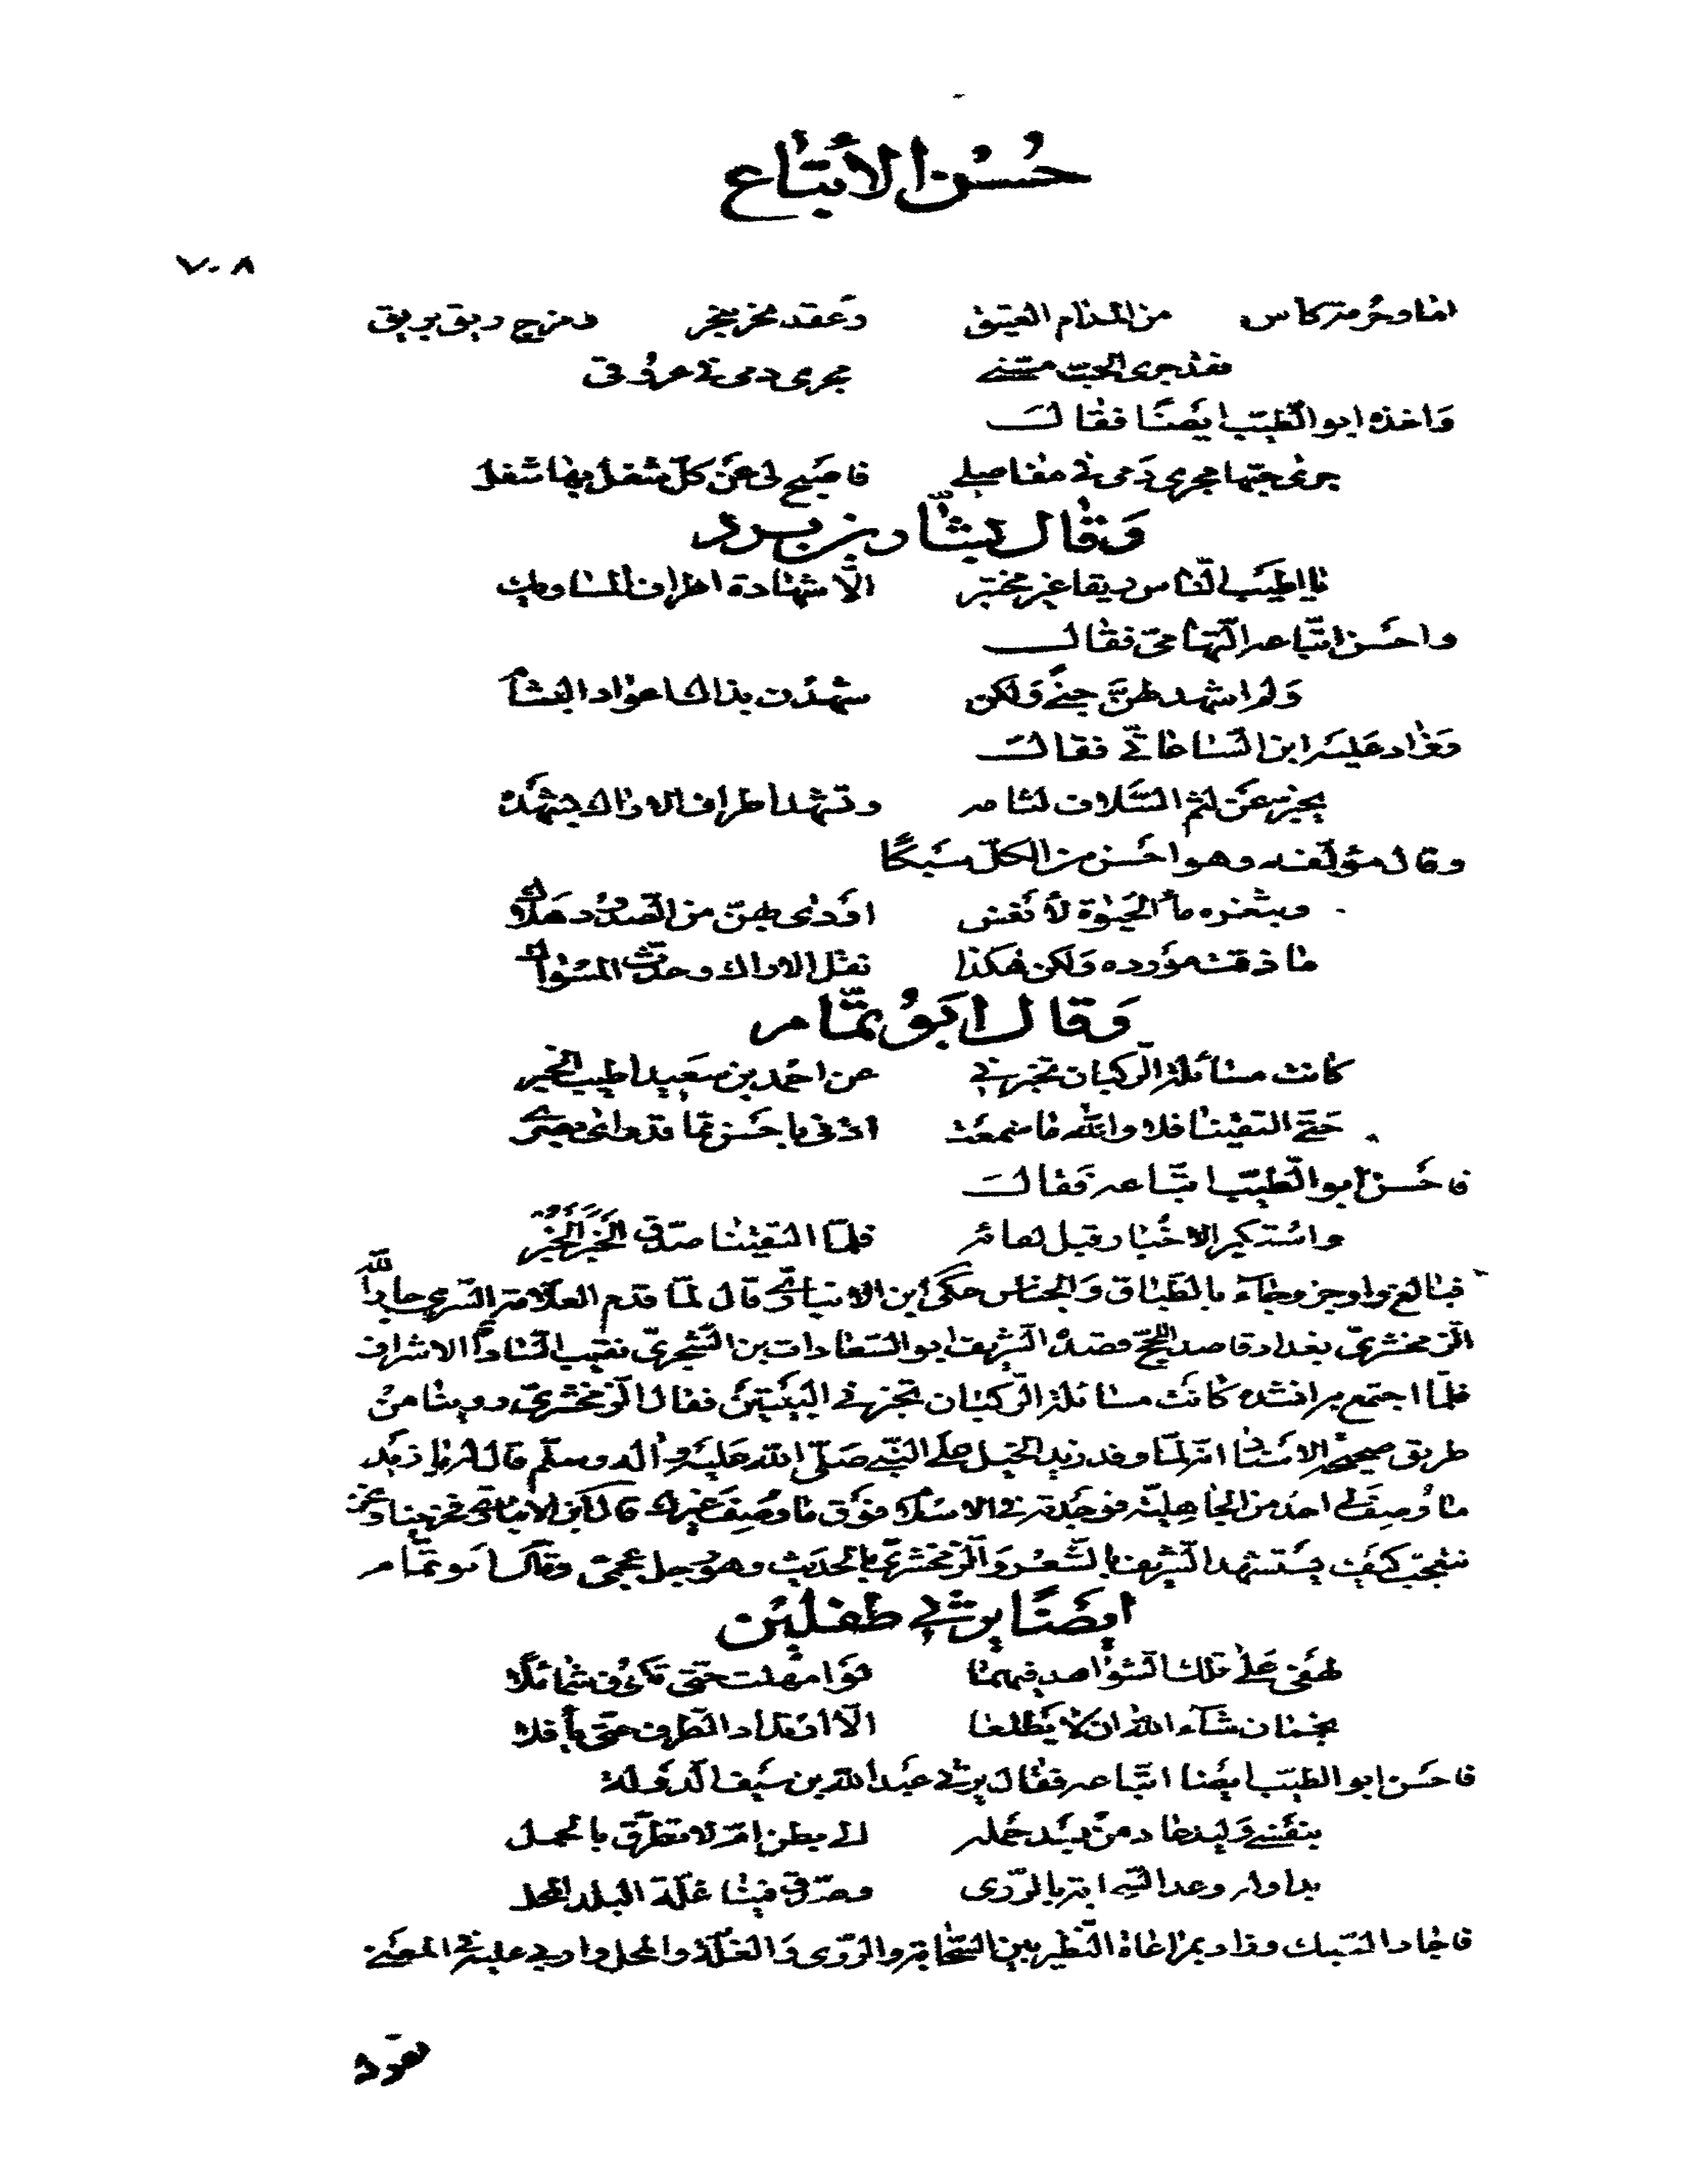 حُسْنُ الأتباع
٧٠٨
اما وحرمة كاس من المدام العتيق وعقد نحر بنحر ومزج ريق بريق
فقد جرى الحب مني مجرى دمي في عروقي
وَاخذه ابو الطيّب ايضًا فقال
جرى حبّها مجرى دَمي في مفاصلي فاصَبح لي عَن كلّ شغل بها شغل
وَقال بشّار بن برد
يا اطيَب الناس ريقا غير مختبر الّا شهادة اطراف المساويك
واحسَن اتّباعه التهامي فقال
وَلم اشهد طعن جني وَلكن شهدَت بذاك اعواد البشام
وَزاد عَليه ابن الساعاتي فقال
يخبر عَن لثم السّلاف لثامه وتشهد اطراف الاراك بشهده
وقال مؤلّفه وهو احسَن من الكلّ سَبكًا
وبثغره ماء الحَيوة لأنفس اودى بهنّ من الصدُود هَلاك
ما ذقت موُرده وَلكن هٰكذا نقل الاراك وحدّث المسوٰاك
وَقال ابَوُ تمّام
كانت مسائلة الركبان تخبرني عن احمد بن سَعيد اطيب الخبر
حَتّى التقينا فلا والله ما سمعَت اذني باحسَن ممّا قد رائ بصَري
فاحَسن ابو الطيّب اتّباعه فقال
واسُتكبر الاخُبار قبل لقائه فلمّا التقينا صدّق الخَبَر الخُبْر
فبالغ واوجز وجاء بالطباق وَالجناس حكى ابن الانباري قال لمّا قدم العلّامة الشهير جار الله
الزمخشريّ بغداد قاصد الحجّ قصده الشريف ابو السّعادات بن الشجريّ نقيب السّادة الاشراف
فلمّا اجتمع به انشده كانَت مسائلة الركبان تخبرني البَيتَين فقال الزمخشريّ روينا منُ
طريق صحيح الاسناد انه لمّا وفد زيد الخيل على النبّي صَلّى الله عليَه وآله وسلّم قال له يا زَيد
ما وُصِف لي احد من الجاهليّة فوجدته في الاسلام فوَق ما وُصِف غيرك قال ابن الانباري فخرجنا ونحن
نتعجّب كيفَ يسَتشهد الشريف بالشّعر وَالزمخشريّ بالحديث وهو رجل عجمي وقال ابو تمّام
ايضًا يرثي طفلين
لهفي عَلى تلك الشوٰاهد فيهمٰا لوَ امهلت حتّى تكوُن شمائلا
نجمان شاء الله ان لا يَطلعا الّا ارتداد الطرف حتّى يأفلا
فاحسَن ابو الطيّب ايضا اتّباعه فقال يرثي عَبد الله بن سَيف الدولة
بنفسي وَليد عاد منُ بعَد حَمله الى بطن امّ لا تطرّق بالحمل
بدا وله وعد السحابة بالروّى وصدّ وفينا غلّة البلد المحل
فاجاد السّبك وزاد بمراعاة النّظير بين السّحابة والروّى وَالغلّة والمحل واربى عليه في المعَنى
بقوله